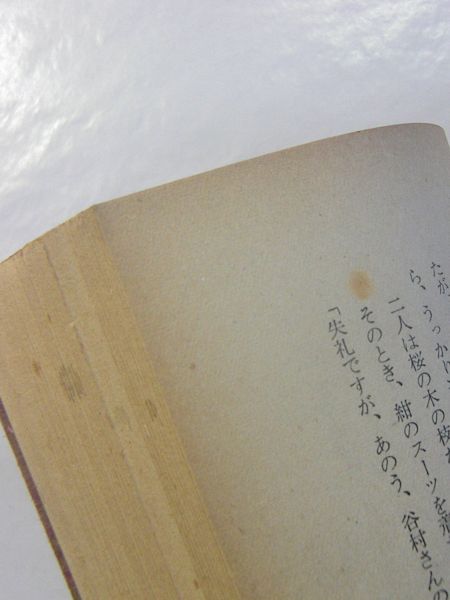 たが、
ら、うっかり
二人は桜の木の枝
そのとき、紺のスーツを着
「失礼ですが、あのう、谷村さんの